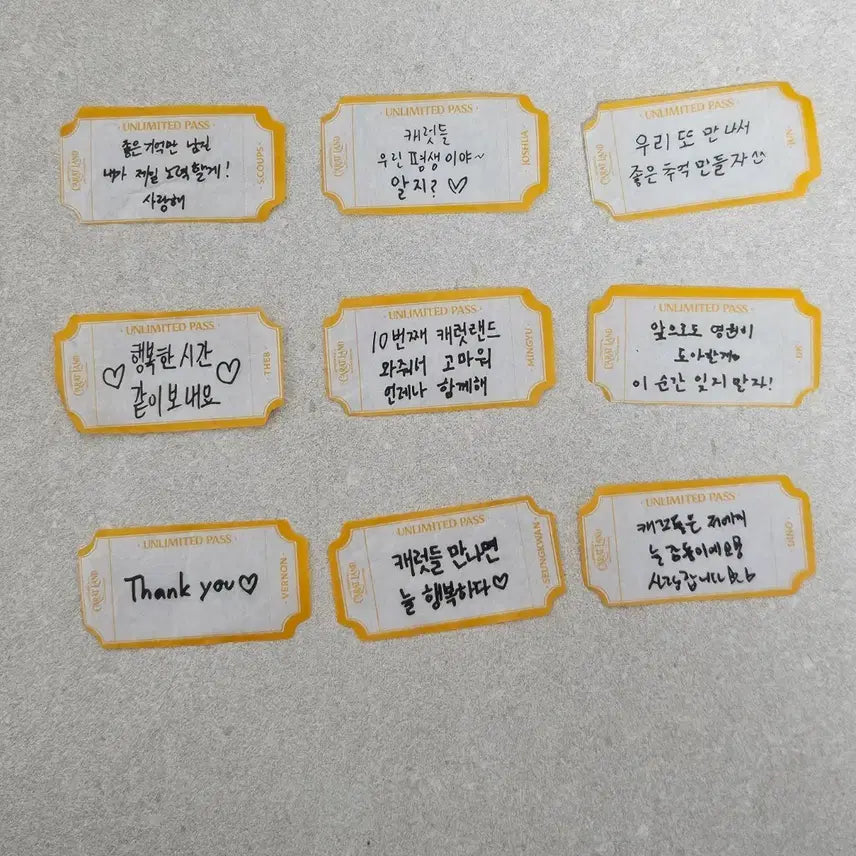 CARAT LAND
· UNLIMITED PASS ·
좋은 기억만 남긴
내가 제일 노력할게!
사랑해
S.COUPS
CARAT LAND
· UNLIMITED PASS ·
캐럿들
우린 평생이야~
알지? ♡
JOSHUA
CARAT LAND
· UNLIMITED PASS ·
우리 또 만나서
좋은 추억 만들자
JUN
CARAT LAND
· UNLIMITED PASS ·
♡ 행복한 시간 ♡
같이 보내요
THE8
CARAT LAND
· UNLIMITED PASS ·
10번째 캐럿랜드
와줘서 고마워
언제나 함께해
MINGYU
CARAT LAND
· UNLIMITED PASS ·
앞으로도 영원히
이 순간 잊지 말자!
DK
CARAT LAND
· UNLIMITED PASS ·
Thank you♡
VERNON
CARAT LAND
· UNLIMITED PASS ·
캐럿들 만나면
늘 행복하다♡
SEUNGKWAN
CARAT LAND
· UNLIMITED PASS ·
캐럿들은 저에게
늘 감동이에요
사랑합니다
DINO